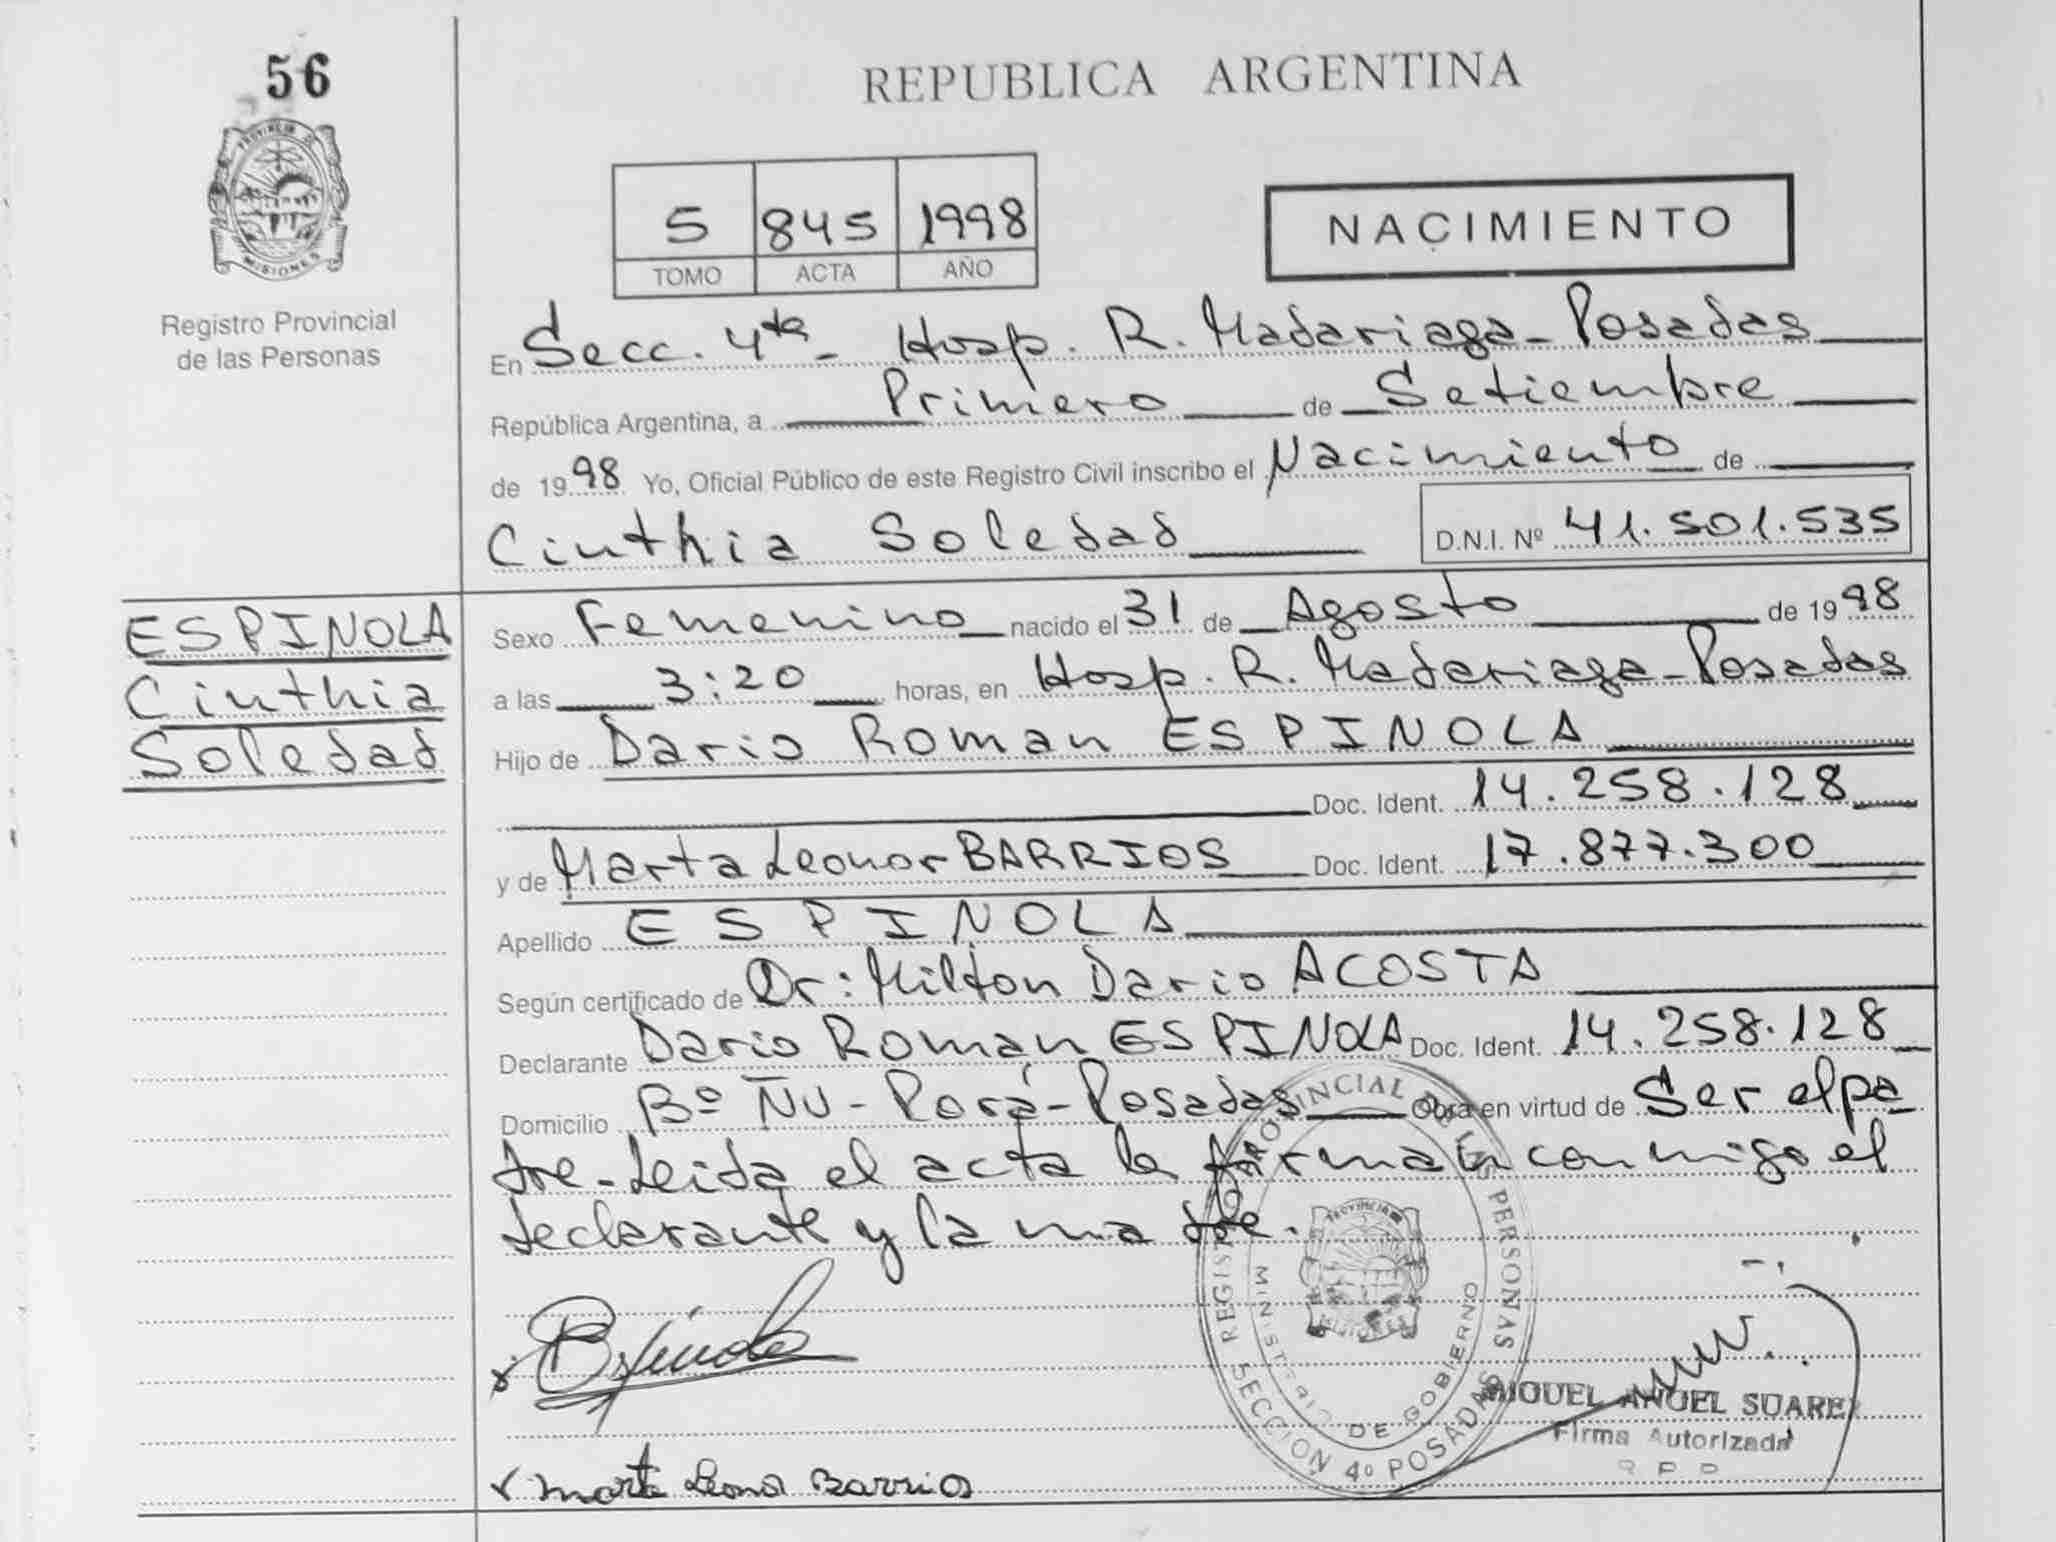 56
PROVINCIA DE
MISIONES
Registro Provincial
de las Personas
REPUBLICA ARGENTINA
5 845 1998
TOMO ACTA AÑO
NACIMIENTO
En Secc. 4ta - Hosp. R. Madariaga - Posadas
República Argentina, a Primero de Setiembre
de 1998 Yo, Oficial Público de este Registro Civil inscribo el Nacimiento de
Cinthia Soledad D.N.I. Nº 41.501.535
ESPINOLA
Cinthia
Soledad
Sexo Femenino nacido el 31 de Agosto de 1998
a las 3:20 horas, en Hosp. R. Madariaga - Posadas
Hijo de Dario Roman ESPINOLA
Doc. Ident. 14.258.128
y de Marta Leonor BARRIOS Doc. Ident. 17.877.300
Apellido ESPINOLA
Según certificado de Dr: Milton Dario ACOSTA
Declarante Dario Roman ESPINOLA Doc. Ident. 14.258.128
Domicilio Bº Ñu - Porá - Posadas Obra en virtud de Ser el pa
dre - Leida el acta la firman conmigo el
declarante y la madre.
REGISTRO PROVINCIAL DE LAS PERSONAS
MINISTERIO DE GOBIERNO
SECCION 4º POSADAS
Espinola
MIGUEL ANGEL SUAREZ
Firma Autorizada
R P P
Marta Leonor Barrios